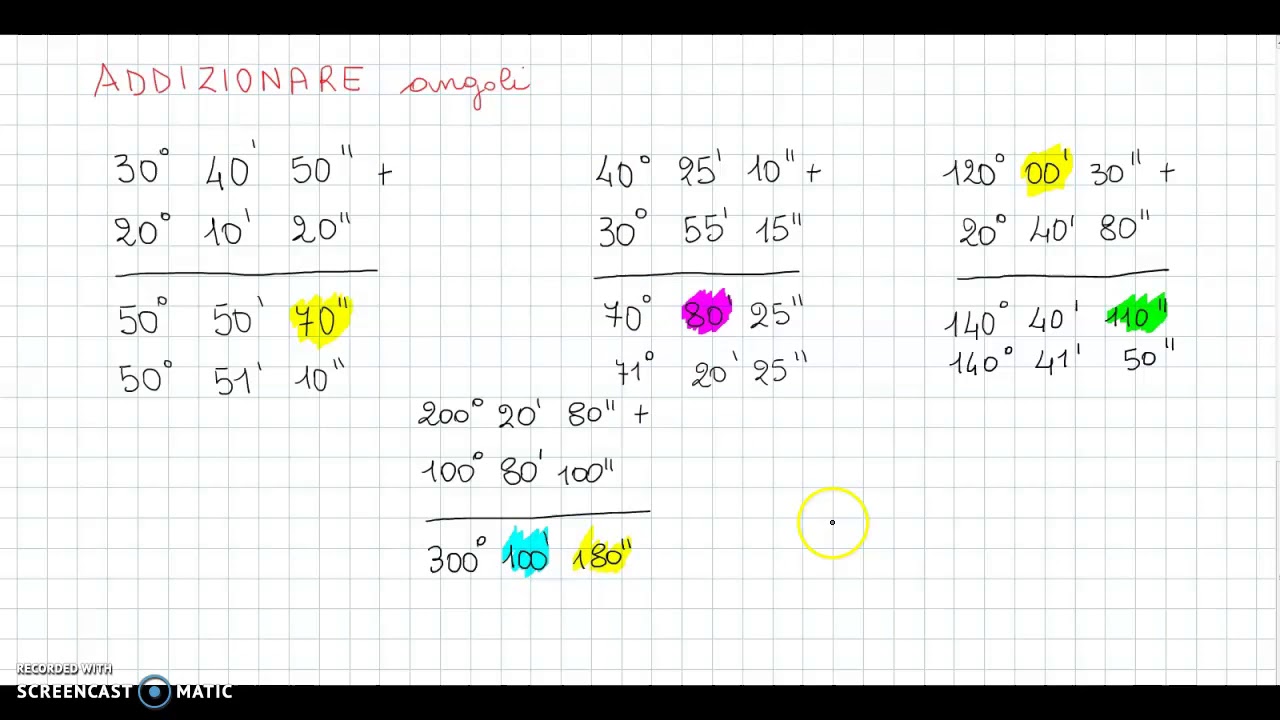 ADDIZIONARE angoli
30° 40' 50" +
20° 10' 20"
50° 50' 70"
50° 51' 10"
40° 25' 10" +
30° 55' 15"
70° 80' 25"
71° 20' 25"
120° 00' 30" +
20° 40' 80"
140° 40' 110"
140° 41' 50"
200° 20' 80" +
100° 80' 100"
300° 100' 180"
RECORDED WITH
SCREENCAST MATIC